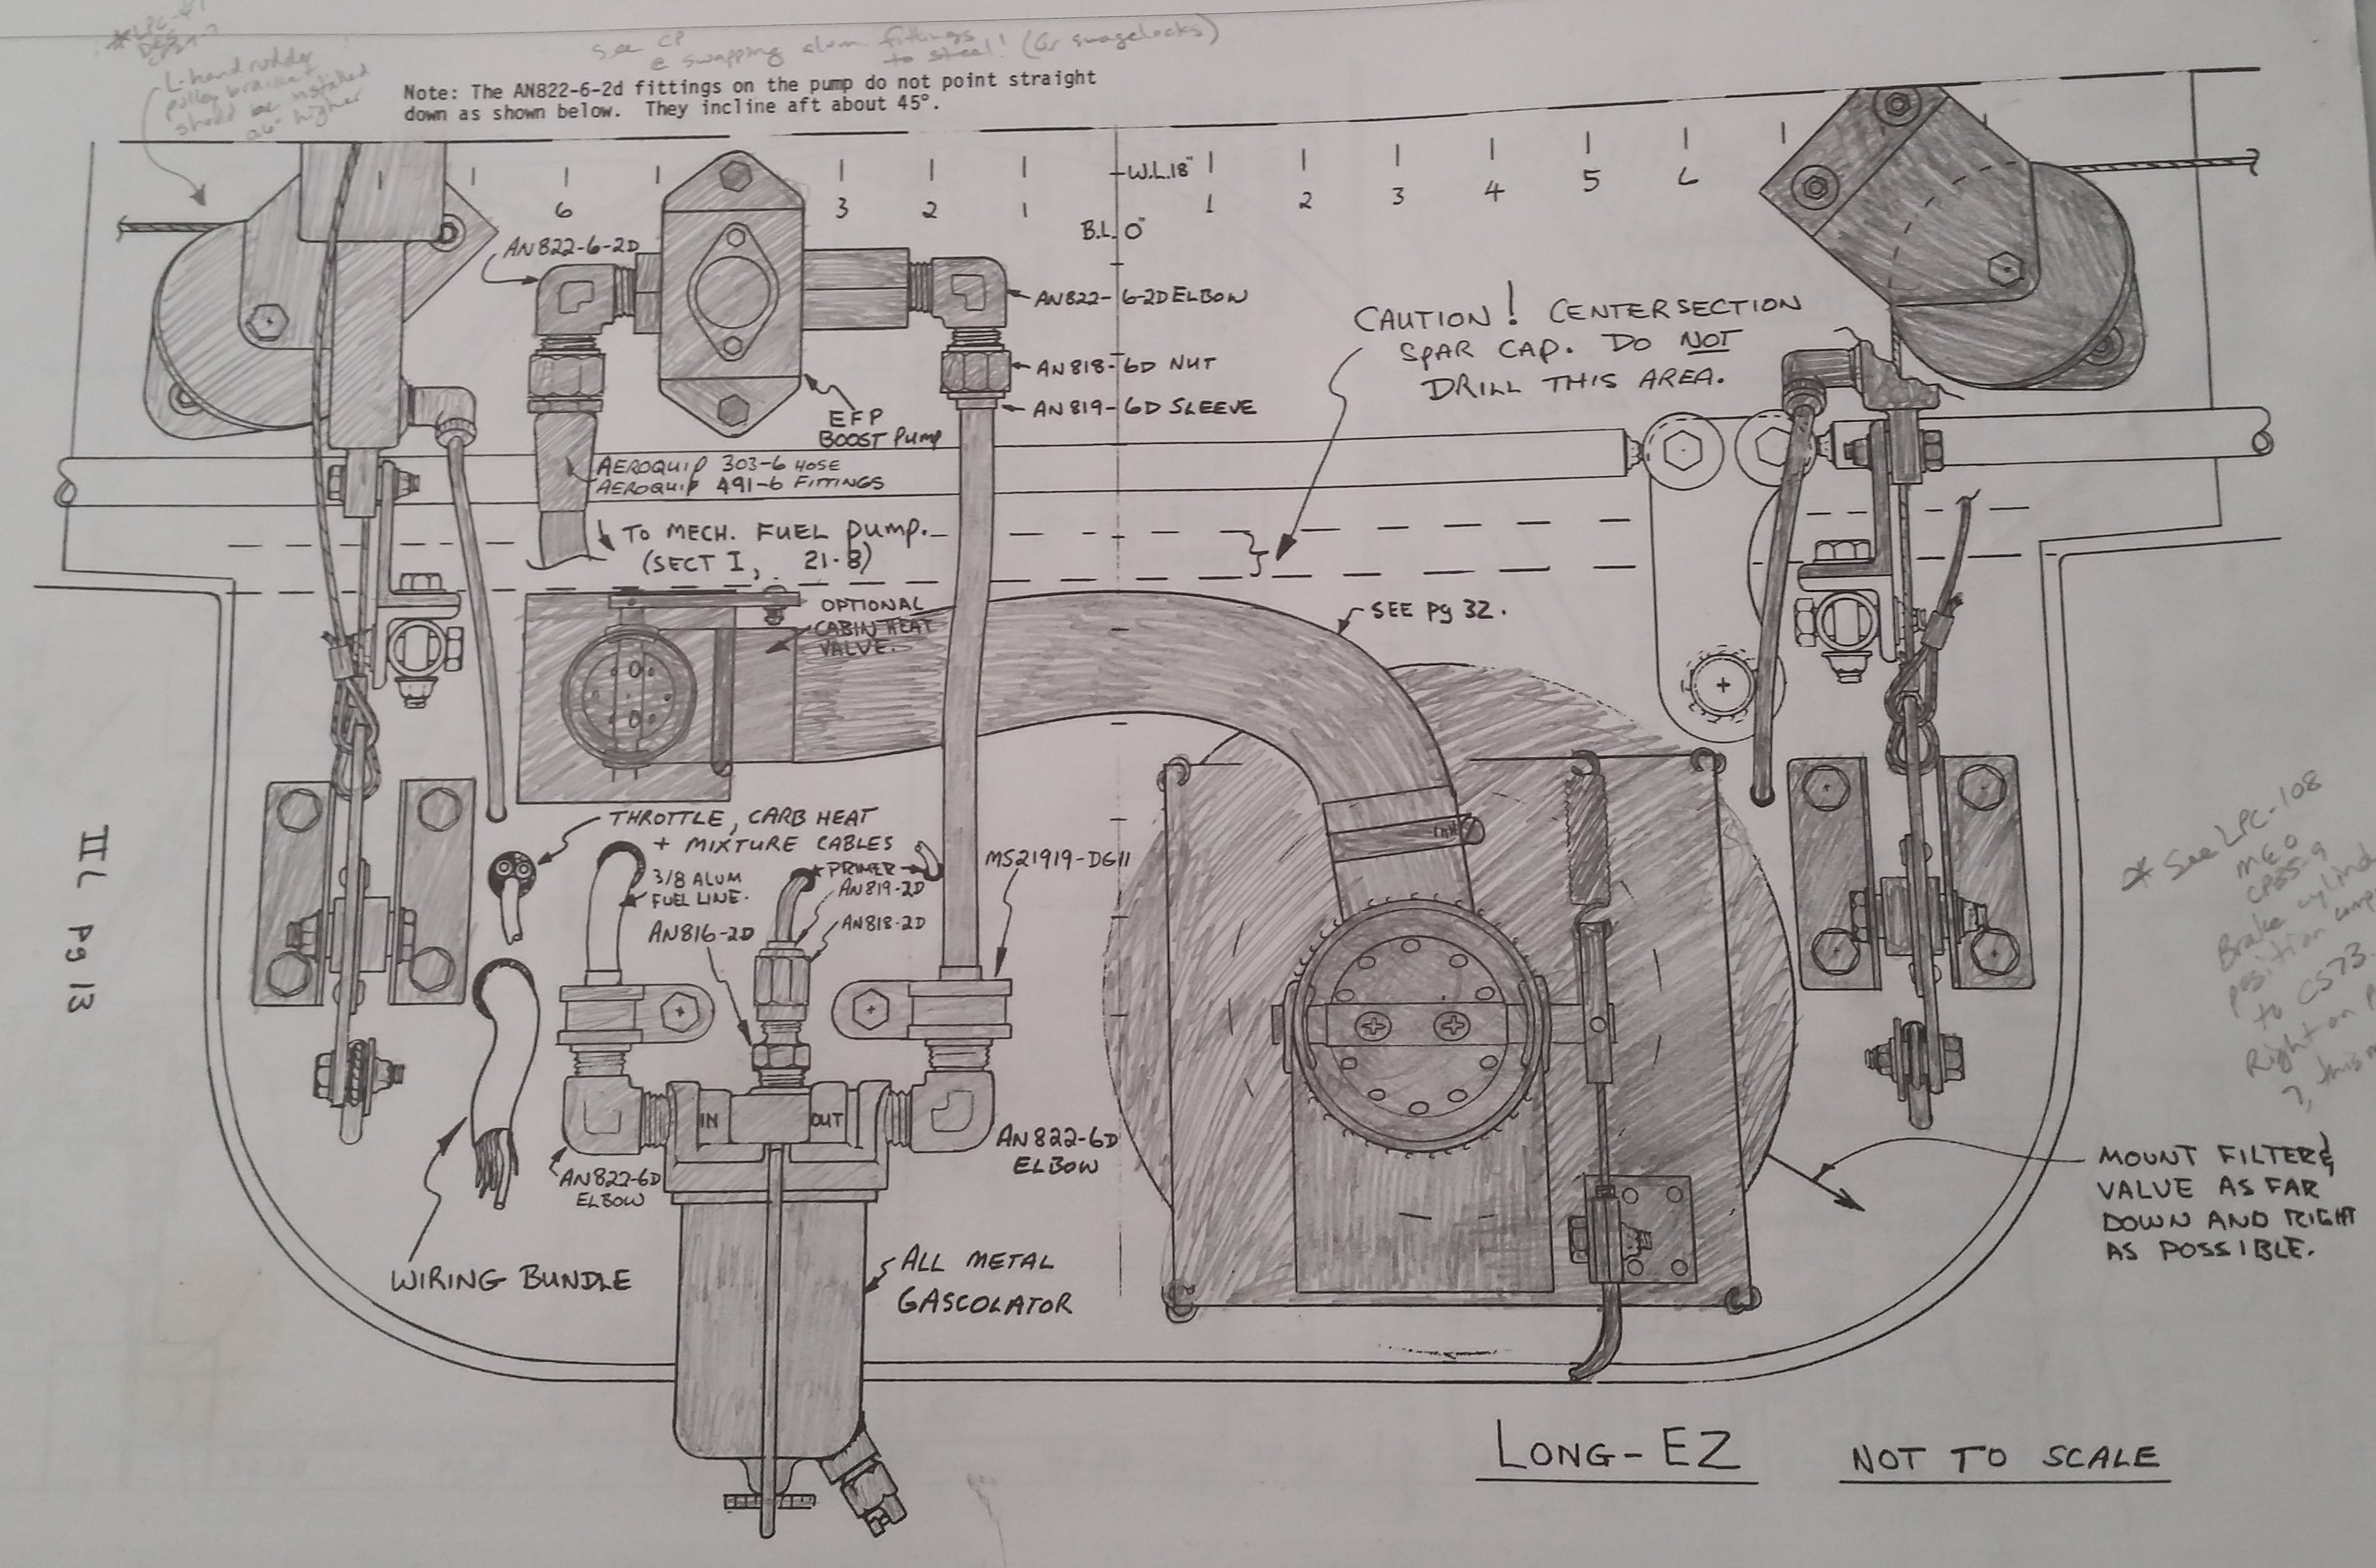 See CP
@ swapping alum fittings
to steel! (Or swagelocks)
L-hand rudder
pulley bracket
should be installed
higher
Note: The AN822-6-2d fittings on the pump do not point straight
down as shown below. They incline aft about 45°.
W.L.18"
6 3 2 1 1 2 3 4 5 6
B.L. 0"
AN822-6-2D
AN822-6-2D ELBOW
AN818-6D NUT
AN819-6D SLEEVE
EFP
BOOST PUMP
CAUTION! CENTERSECTION
SPAR CAP. DO NOT
DRILL THIS AREA.
AEROQUIP 303-6 HOSE
AEROQUIP 491-6 FITTINGS
TO MECH. FUEL PUMP.
(SECT I, 21-8)
OPTIONAL
CABIN HEAT
VALVE.
SEE pg 32.
THROTTLE, CARB HEAT
+ MIXTURE CABLES
3/8 ALUM
FUEL LINE.
*PRIMER
AN819-2D
AN818-2D
AN816-2D
MS21919-DG11
IN
OUT
AN822-6D
ELBOW
AN822-6D
ELBOW
WIRING BUNDLE
ALL METAL
GASCOLATOR
* See LPC-108
MEO
Brake
position
Right on
MOUNT FILTER &
VALVE AS FAR
DOWN AND RIGHT
AS POSSIBLE.
LONG-EZ
NOT TO SCALE
II L pg 13